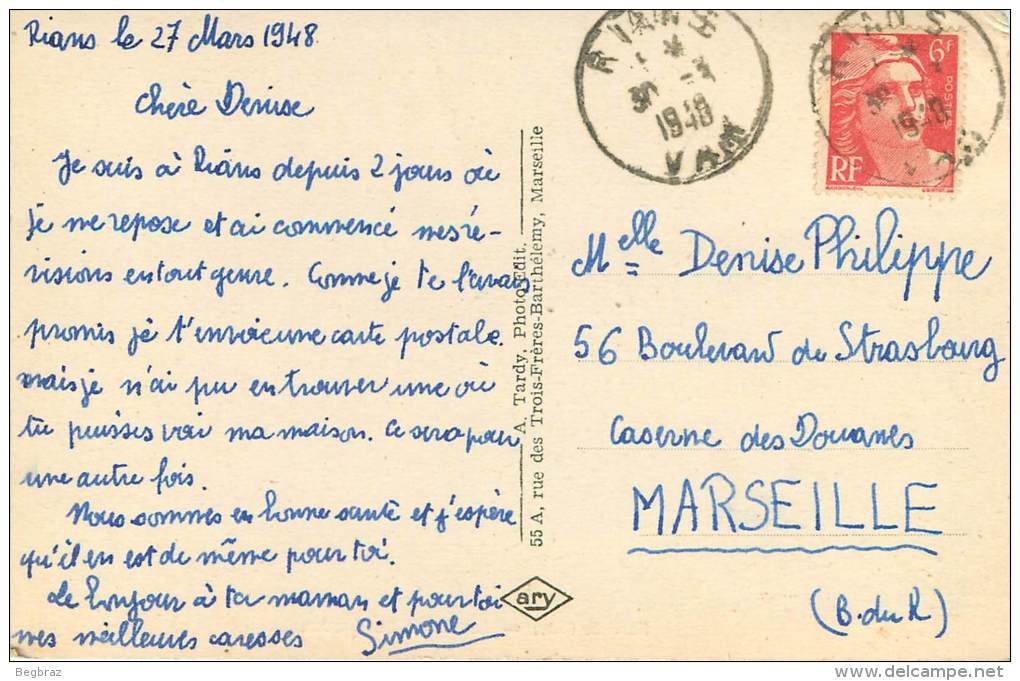 Rians le 27 Mars 1948
Chère Denise
Je suis à Rians depuis 2 jours où
je me repose et ai commencé mes ré-
visions en tout genre. Comme je te l'avais
promis je t'envoie une carte postale.
mais je n'ai pu en trouver une où
tu puisses voir ma maison. Ce sera pour
une autre fois.
Nous sommes en bonne santé et j'espère
qu'il en est de même pour toi.
Le bonjour à ta maman et pour toi
mes meilleures caresses Simone
A. Tardy, Photo-Edit.
55 A, rue des Trois-Frères-Barthélemy, Marseille
ary
RIANS
1948
VAR
RIANS
1948
6F
POSTES
RF
Melle Denise Philippe
56 Boulevard de Strasbourg
Caserne des Douanes
MARSEILLE
(B. du R)
Begbraz
www.delcampe.net